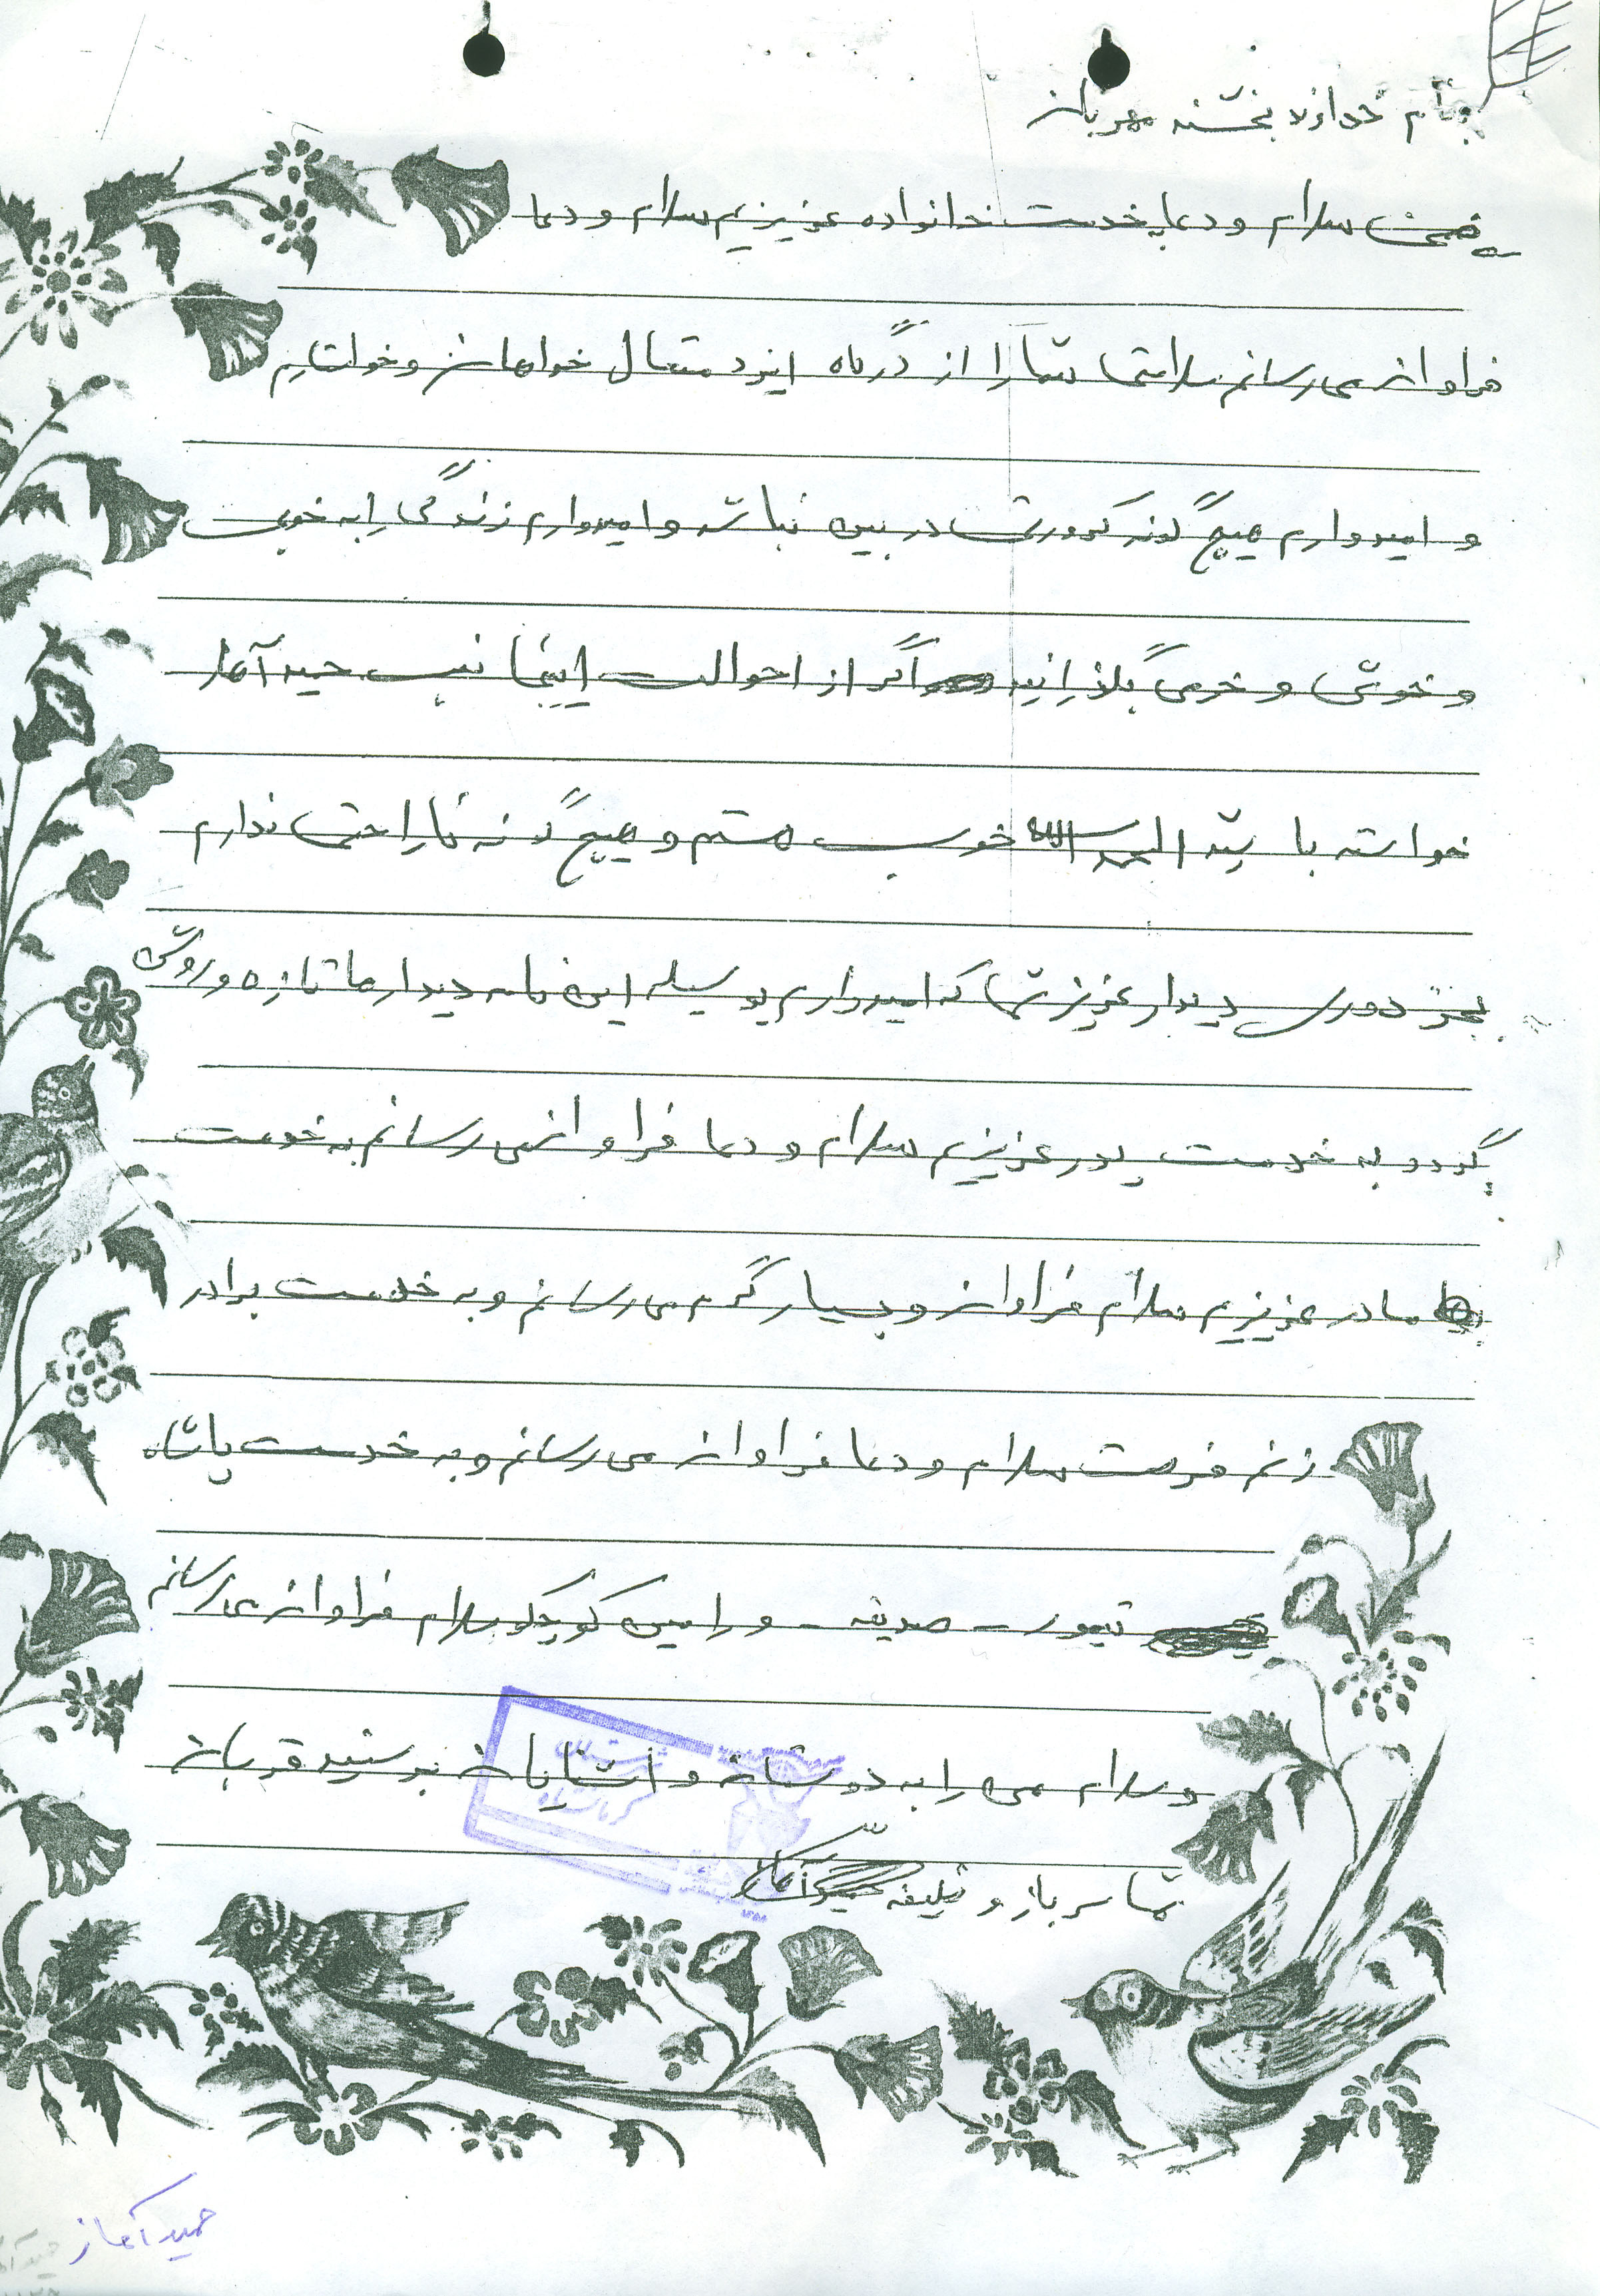 بنام خداوند بخشنه مهربان
ضمن سلام و دعا به خدمت خانواده عزیزیم سلام و دعا
فراوان می رسانم سلامتی شما را از درگاه ایزد متعال خواهانم و خواستارم
و امیدوارم هیچ گونه کدورتی در بین نباشد و امیدوارم زندگی را به خوبی
و خوشی و خرمی بگذرانید اگر از احوالت اینجانب حمید آغاز
خواسته باشید الحمد الله خوب هستم و هیچ گونه ناراحتی ندارم
بجز دوری دیدار عزیز شما که امیدوارم بوسیله این نامه دیدارها تازه و روشن
گردد به خدمت پدر عزیزیم سلام و دعا فراوان می رسانم به خدمت
مادر عزیزیم سلام فراوان و بسیار گرم می رسانم و به خدمت برادر
زنم فرصت سلام و دعا فراوان می رسانم و به خدمت پاشاه
تیمور - صدیقه - و رامین کوچکو سلام فراوان می رسانم
و سلام من را به دوستان و آشنایان برسنید قربان
شما سرباز و ظیفه حمید آغاز
حمید آغاز